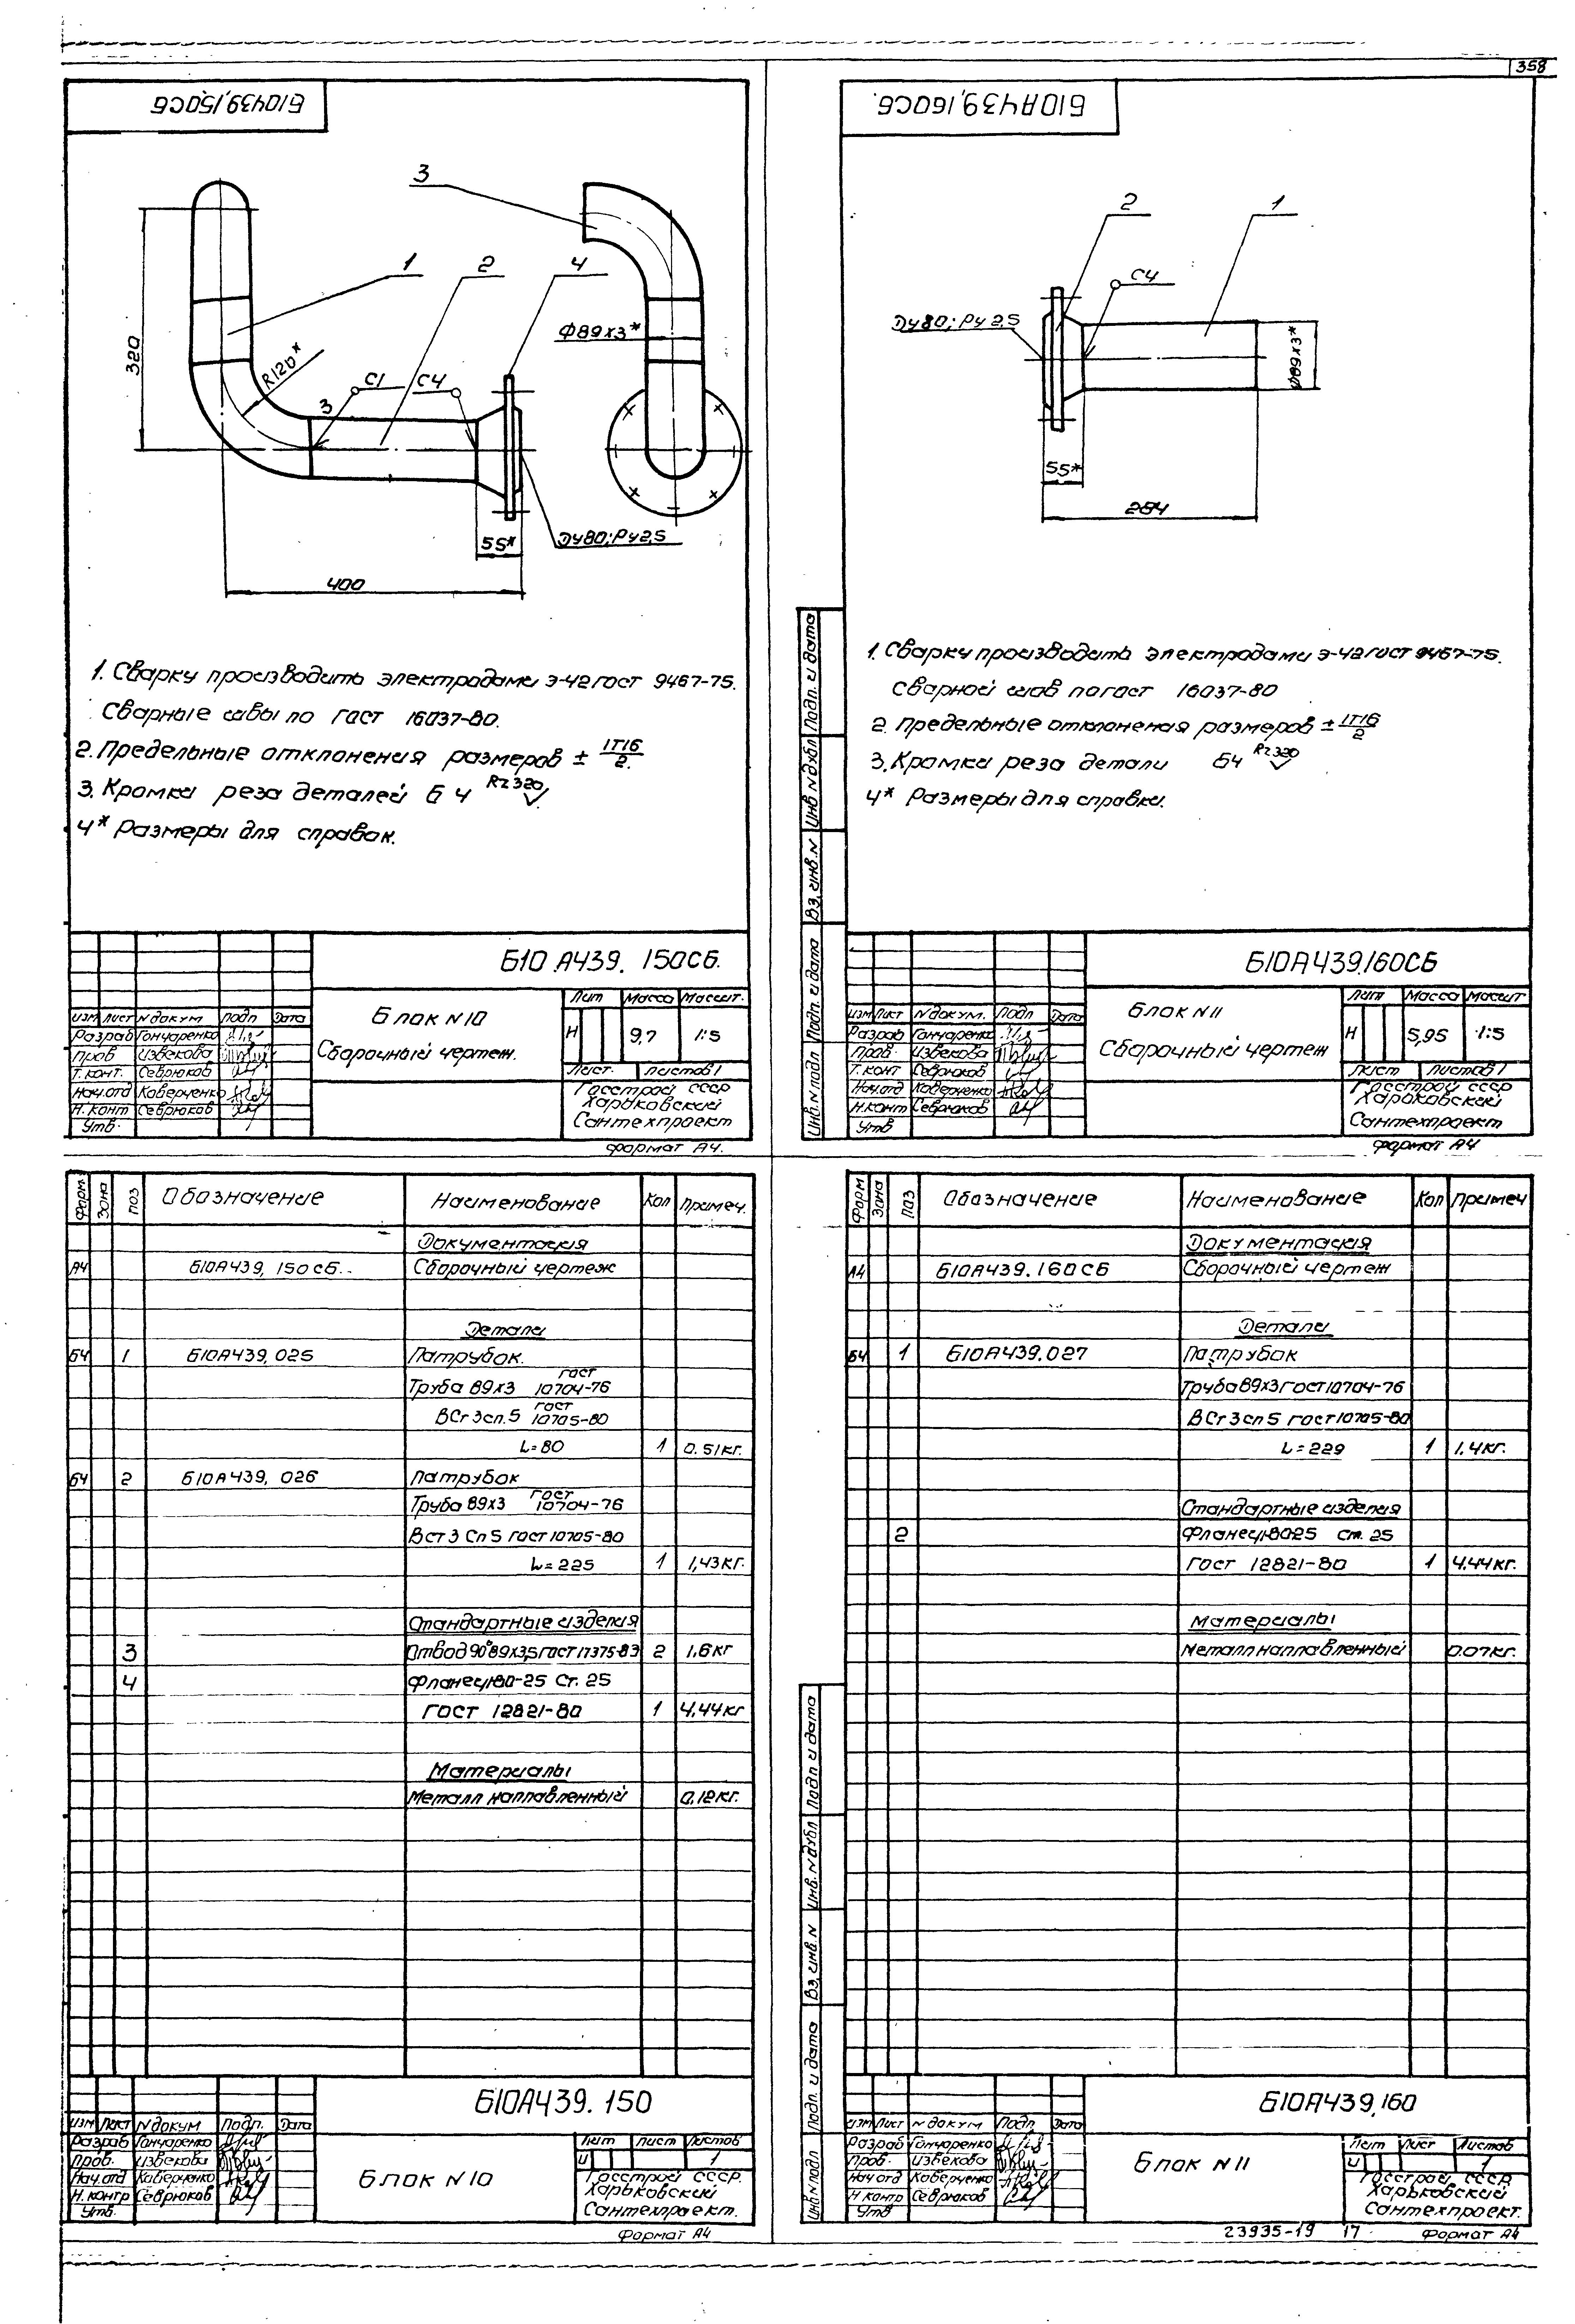 358
Б10А439,150СБ
3
1
2
4
320
R120*
3
С1
С4
Ф89х3*
55*
Ду80; Ру2,5
400
1. Сварку производить электродами Э-42 ГОСТ 9467-75.
Сварные швы по ГОСТ 16037-80.
2. Предельные отклонения размеров ± IT16/2.
3. Кромки реза деталей БЧ Rz320
4* Размеры для справок.
Б10А439. 150СБ.
Изм Лист N докум Подп Дата
Разраб Гончаренко
Пров Извекова
Т. конт. Севрюков
Нач.отд Каверченко
Н. конт Севрюков
Утв.
Блок N10
Сборочный чертеж.
Лит Масса Масшт.
Н 9,7 1:5
Лист. Листов 1
Госстрой СССР
Харьковский
Сантехпроект
Формат А4.
Б10А439,160СБ.
2
1
С4
Ду80; Ру2,5
Ф89х3*
55*
284
1. Сварку производить электродами Э-42 ГОСТ 9467-75.
Сварной шов по ГОСТ 16037-80
2. Предельные отклонения размеров ± IT16/2
3. Кромки реза детали БЧ Rz320
4* Размеры для справки.
Инв.N подл Подп. и дата Вз. инв.N Инв N дубл Подп. и дата
Б10А439,160СБ
Изм Лист N докум. Подп Дата
Разраб Гончаренко
Пров. Извекова
Т. конт Севрюков
Нач.отд Каверченко
Н.конт Севрюков
Утв
Блок N11
Сборочный чертеж
Лит Масса Масшт
Н 5,95 1:5
Лист Листов 1
Госстрой СССР
Харьковский
Сантехпроект
Формат А4
Форм. Зона Поз Обозначение Наименование Кол Примеч.
Документация
А4 Б10А439, 150СБ. Сборочный чертеж
Детали
БЧ 1 Б10А439, 025 Патрубок.
Труба 89х3 ГОСТ 10704-76
ВСт 3сп.5 ГОСТ 10705-80
L=80 1 0.51кг.
БЧ 2 Б10А439, 026 Патрубок
Труба 89х3 ГОСТ 10704-76
ВСт 3 Сп5 ГОСТ 10705-80
L=225 1 1,43кг.
Стандартные изделия
3 Отвод 90°89х3,5 ГОСТ 17375-83 2 1.6кг
4 Фланец 1-80-25 Ст. 25
ГОСТ 12821-80 1 4,44кг
Материалы
Металл наплавленный 0,12кг.
Б10А439. 150
Изм Лист N докум Подп. Дата
Разраб Гончаренко
Пров. Извекова
Нач.отд Каверченко
Н. контр Севрюков
Утв.
Блок N10
Лит Лист Листов
И 1
Госстрой СССР.
Харьковский
Сантехпроект.
Формат А4
Форм Зона Поз Обозначение Наименование Кол Примеч
Документация
А4 Б10А439. 160СБ Сборочный чертеж
Детали
БЧ 1 Б10А439, 027 Патрубок
Труба 89х3 ГОСТ 10704-76
ВСт 3 сп 5 ГОСТ 10705-80
L=229 1 1.4кг.
Стандартные изделия
2 Фланец 1-80-25 Ст. 25
ГОСТ 12821-80 1 4.44кг.
Материалы
Металл наплавленный 0.07кг.
Инв N подл Подп. и дата Вз. инв. N Инв. N дубл Подп и дата
Б10А439,160
Изм Лист N докум Подп Дата
Разраб Гончаренко
Пров. Извекова
Нач отд Каверченко
Н контр Севрюков
Утв
Блок N11
Лит Лист Листов
И 1
Госстрой СССР
Харьковский
Сантехпроект.
23935-19 17 Формат А4